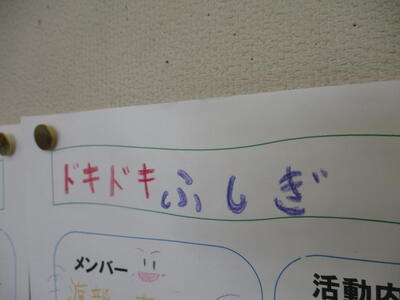 ドキドキふしぎ
メンバー
活動内